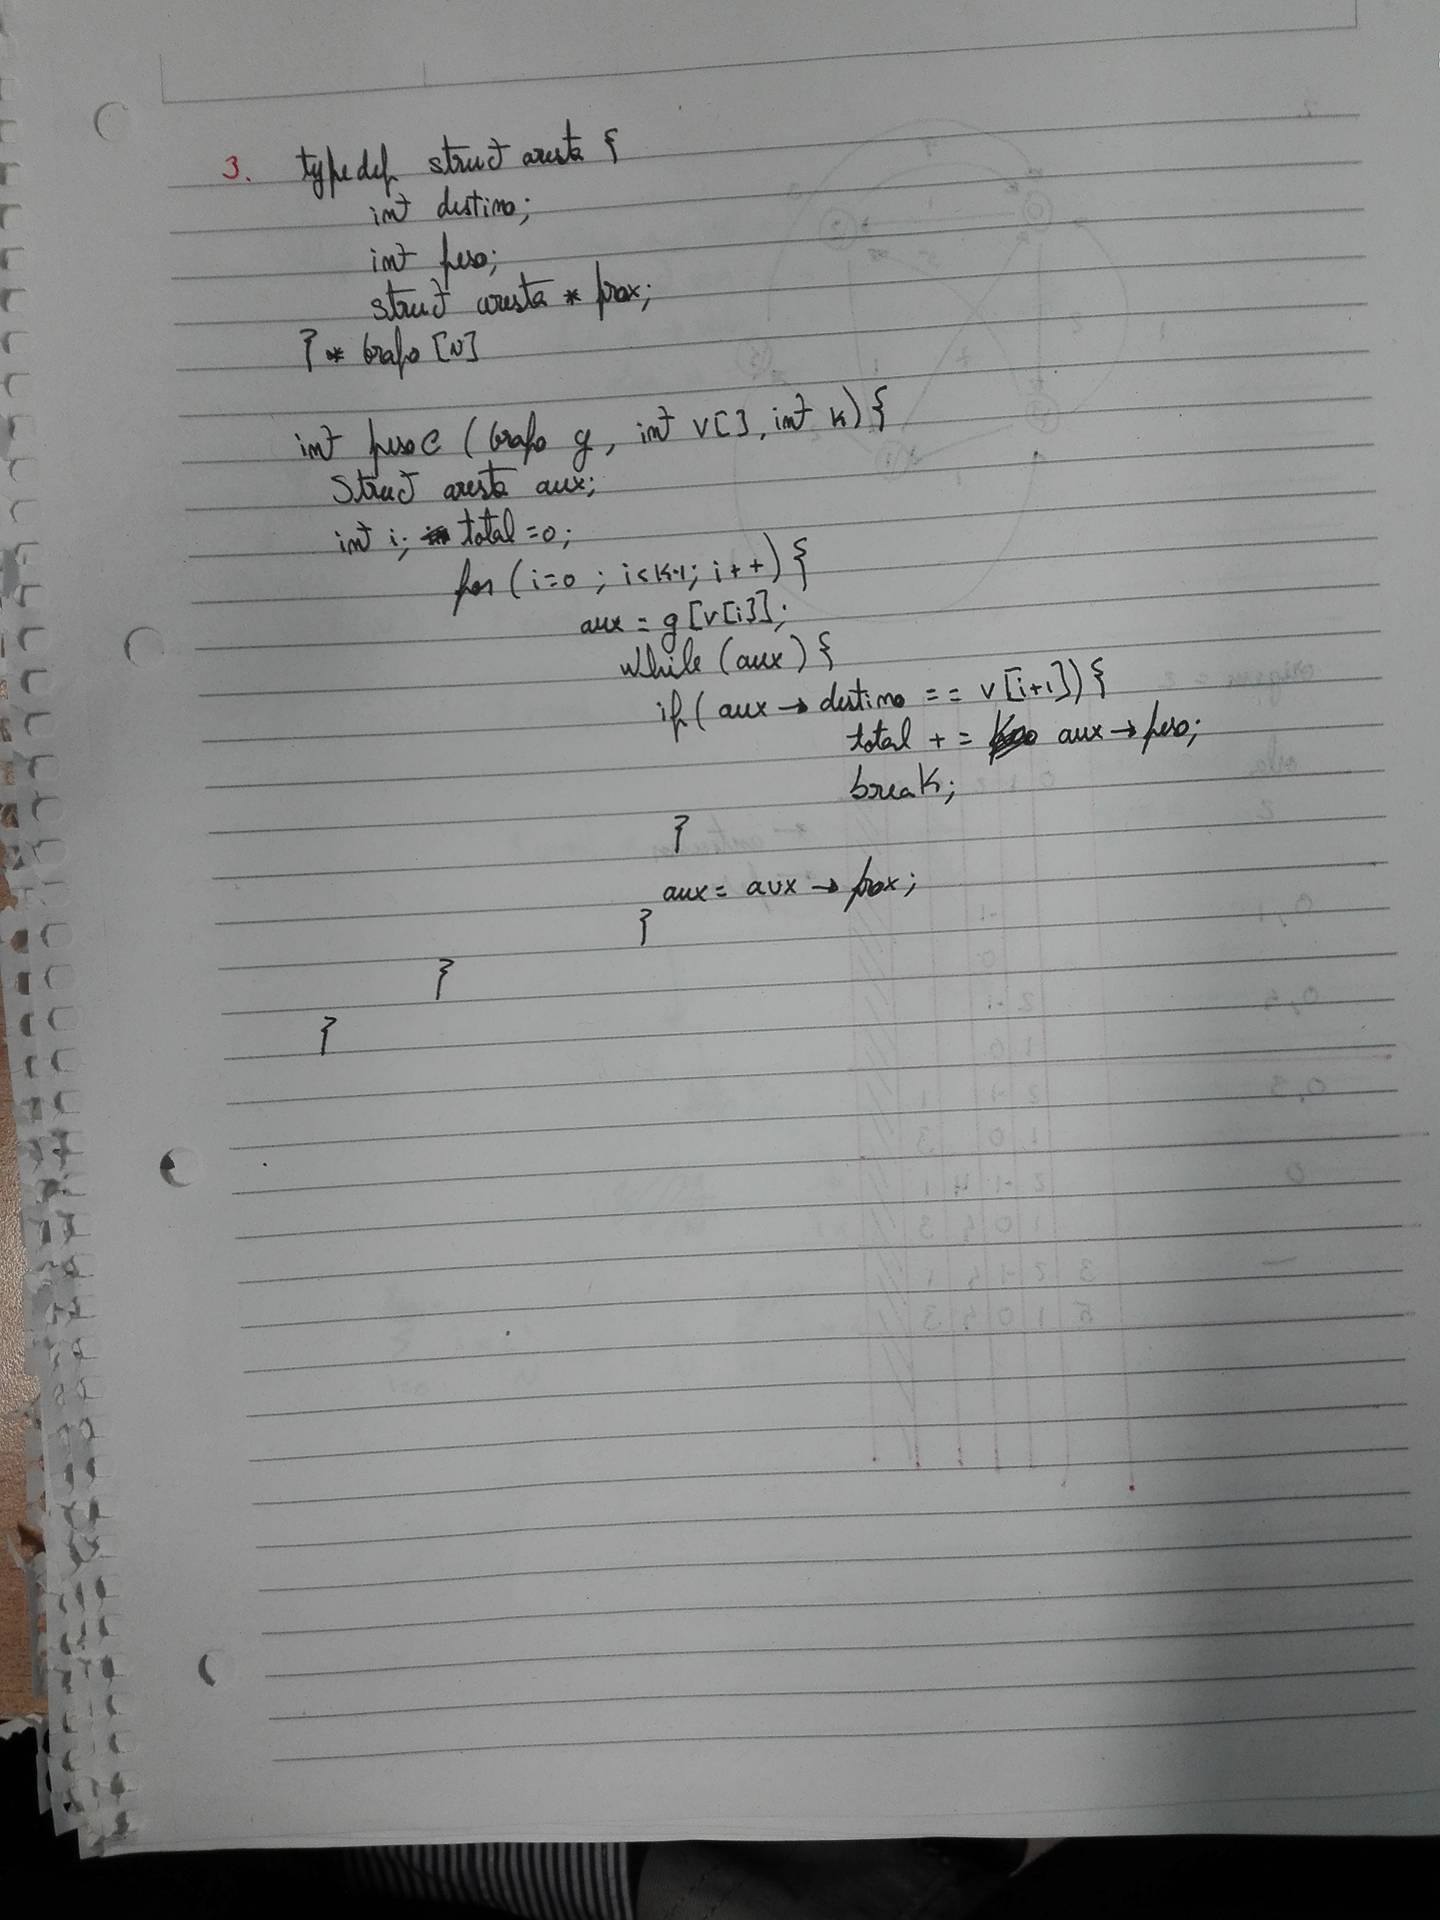 3. typedef struct aresta {
int destino;
int peso;
struct aresta * prox;
} * Grafo [N]
int pesoC (Grafo g, int v[], int k) {
struct aresta aux;
int i; total = 0;
for (i=0 ; i<k-1; i++) {
aux = g[v[i]];
while (aux) {
if (aux → destino == v[i+1]) {
total += aux → peso;
break;
}
aux = aux → prox;
}
}
}